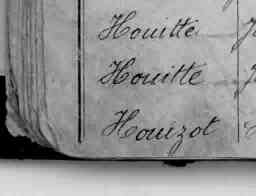 Houitte
Houitte
Houizot